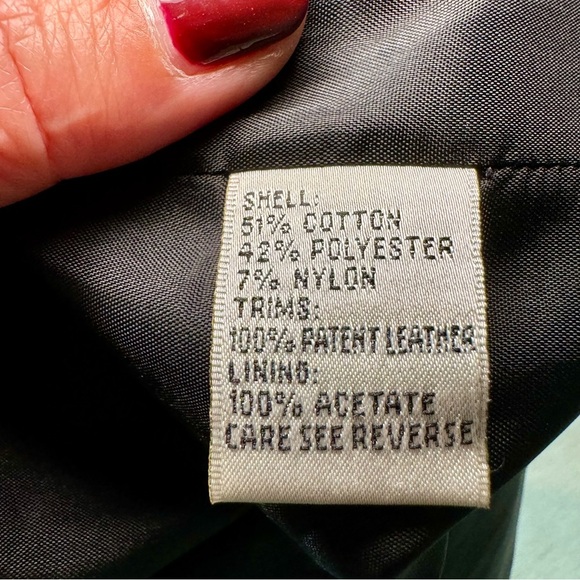 SHELL:
51% COTTON
42% POLYESTER
7% NYLON
TRIMS:
100% PATENT LEATHER
LINING:
100% ACETATE
CARE SEE REVERSE